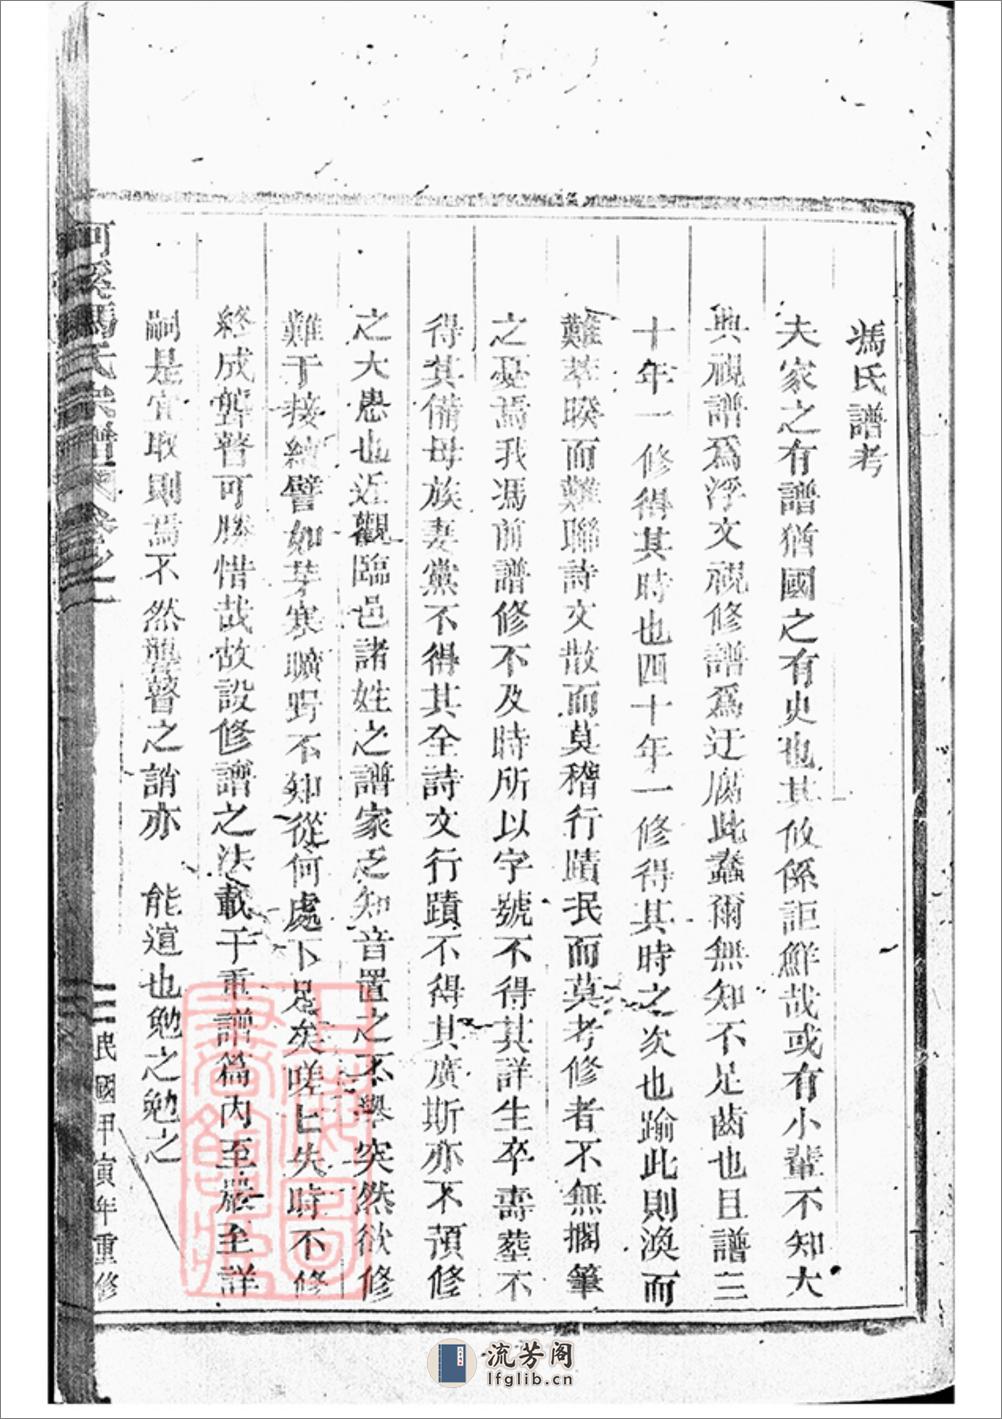 馮氏譜考
夫家之有譜猶國之有史也其攸係詎鮮哉或有小輩不知大
典視譜爲浮文視修譜爲迂腐此蠢爾無知不足齒也且譜三
十年一修得其時也四十年一修得其時之次也踰此則渙而
難萃睽而難聯詩文散而莫稽行蹟泯而莫考修者不無擱筆
之憂焉我馮前譜修不及時所以字號不得其詳生卒壽塟不
得其備母族妻黨不得其全詩文行蹟不得其廣斯亦不預修
之大患也近觀臨邑諸姓之譜家乏知音置之不舉突然欲修
難于接續譬如芽寒曠野不知從何處下足矣嗟乜失時不修
終成聾瞽可勝惜哉故設修譜之法載于重譜篇內至嚴至詳
嗣是宜取則焉不然聾瞽之誚亦 能逭也勉之勉之
河溪馮氏宗譜 卷之一
民國甲寅年重修
上海圖書館藏
流芳阁
lfglib.cn